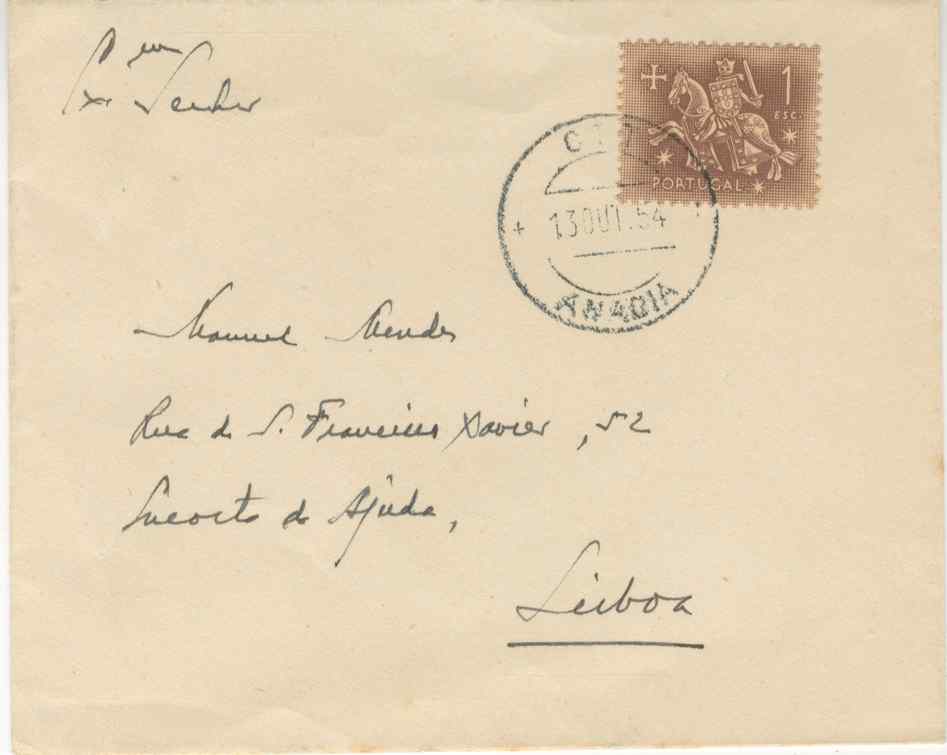 Exmo
Senhor
1
ESC.
PORTUGAL
CTT
13 OUT. 54
ANADIA
Manuel Mendes
Rua de S. Francisco Xavier, 52
Encosta da Ajuda,
Lisboa